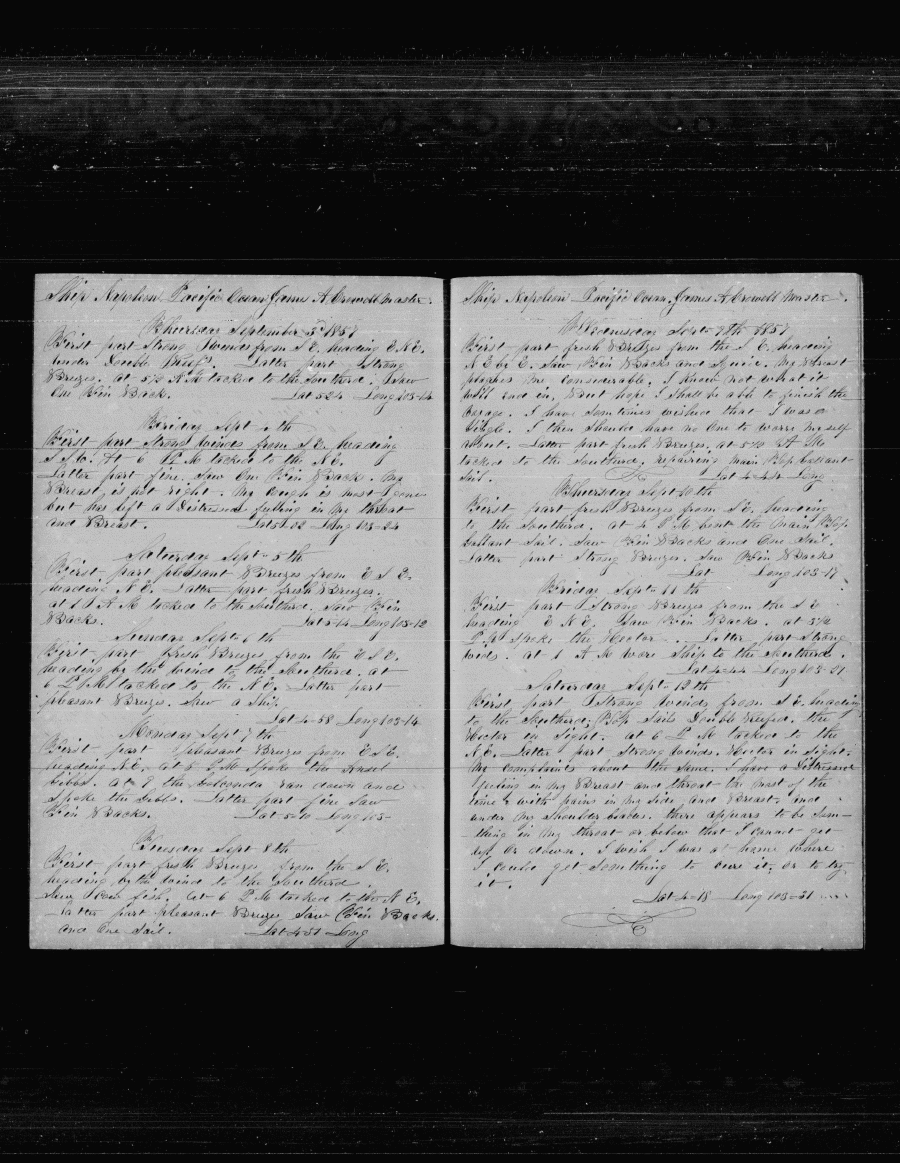 Ship Napoleon Pacific Ocean James A. Crowell Master
Thursday September 3d 1857
First part Strong Winds from S E. heading E N E.
under Double Reefs. Latter part Strong
Breezes. at 5½ A M tacked to the Southerd. Saw
One Fin Back. Lat 5 24 Long 103-14
Friday Sept 4th
First part Strong Winds from S E. heading
At 6 P M tacked to the N E.
Latter part fine. Saw One Fin Back. My
Breast is not right. My Cough is most gone
but has left a Distressed feeling in my throat
and Breast. Long 103-24
Saturday Sept- 5th
First part pleasant Breezes from E S E.
heading N E. Latter part fresh Breezes.
at A M tacked to the Southerd. Saw Fin
Backs. Lat 5-14 Long 103-12
Sunday Sept- 6th
First part fresh Breezes from the E S E.
heading by the wind to the Southerd. at
6 P M tacked to the N E. Latter part
pleasant Breezes. Saw a Ship.
Lat 4-58 Long 103-14
Monday Sept 7th
First part pleasant Breezes from E S E.
heading N E. at 5 P M Spoke the
Gibbs. at 7 the Golconda ran down and
Spoke the Gibbs. Latter part fine Saw
Fin Backs. Lat 5-10 Long 103-
Tuesday Sept 8th
First part fresh Breezes from the S E.
heading by the wind to the Southerd.
Saw Cow fish. at 6 P M tacked to the N E.
Latter part pleasant Breezes Saw Fin Backs.
and One Sail. Lat 4-51 Long
Ship Napoleon Pacific Ocean, James A Crowell Master
Wednesday Sept- 9th 1857
First part fresh Breezes from the S E. heading
N E by E. Saw Fin Backs and My Breast
plagues me considerable. I know not what it
will end in, But hope I shall be able to finish the
voyage. I have sometimes wished that I was a
Single. I then should have no One to worry myself
about. Latter part fresh Breezes. at 5½ A M
tacked to the Southerd, repairing main Top Gallant
Sail. Lat 4-44 Long
Thursday Sept 10th
First part fresh Breezes from S E. heading
to the Southerd. at 4 P M bent the Main Top
Gallant Sail. Saw Fin Backs and One Sail.
Latter part Strong Breezes. Saw Fin Backs
Lat Long 103-17
Friday Sept- 11th
First part Strong Breezes from the S E
heading E N E. Saw Fin Backs. at 5½
P M spoke the Hector. Latter part Strong
winds. at 1 A M wore Ship to the Southerd.
Lat 4-44 Long 103-31
Saturday Sept- 12th
First part Strong Winds from S E. heading
to the Southerd; Top Sails Double Reefed. the
Hector in Sight. at 6 P M tacked to the
N E. Latter part Strong Winds. Hector in Sight.
My complaints about the Same. I have a Distressed
feeling in my Breast and throat the most of the
time & with pains in my side, and Breast- and
under my Shoulder blades. there appears to be Some-
thing in my throat or below that I cannot get
up or down. I wish I was at home where
I could get Something to cure it, or to try
it.
Lat 4-18 Long 103-31